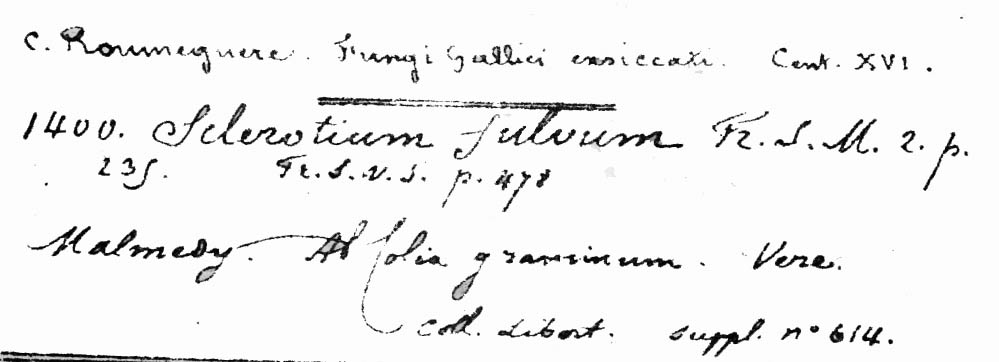 C. Roumeguere. Fungi Gallici exsiccati. Cent. XVI.
1400. Sclerotium fulvum Fr. S. M. 2. p.
235. Fr. S. V. S. p. 478
Malmedy. Ad folia graminum. Vere.
Coll. Libert. suppl. n° 614.